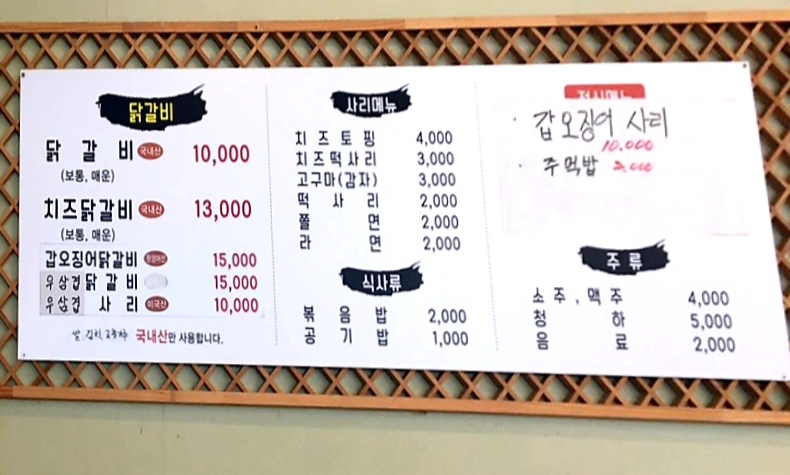 닭갈비
닭 갈 비 국내산 10,000
(보통, 매운)
치즈닭갈비 국내산 13,000
(보통, 매운)
갑오징어닭갈비 원양어선 15,000
우삼겹 닭 갈 비 15,000
우삼겹 사 리 미국산 10,000
쌀, 김치, 고춧가루 국내산만 사용합니다.
사리메뉴
치 즈 토 핑 4,000
치즈떡사리 3,000
고구마(감자) 3,000
떡 사 리 2,000
쫄 면 2,000
라 면 2,000
식사류
볶 음 밥 2,000
공 기 밥 1,000
점심메뉴
· 갑오징어 사리
10.000
· 주먹밥
주 류
소 주 , 맥 주 4,000
청 하 5,000
음 료 2,000